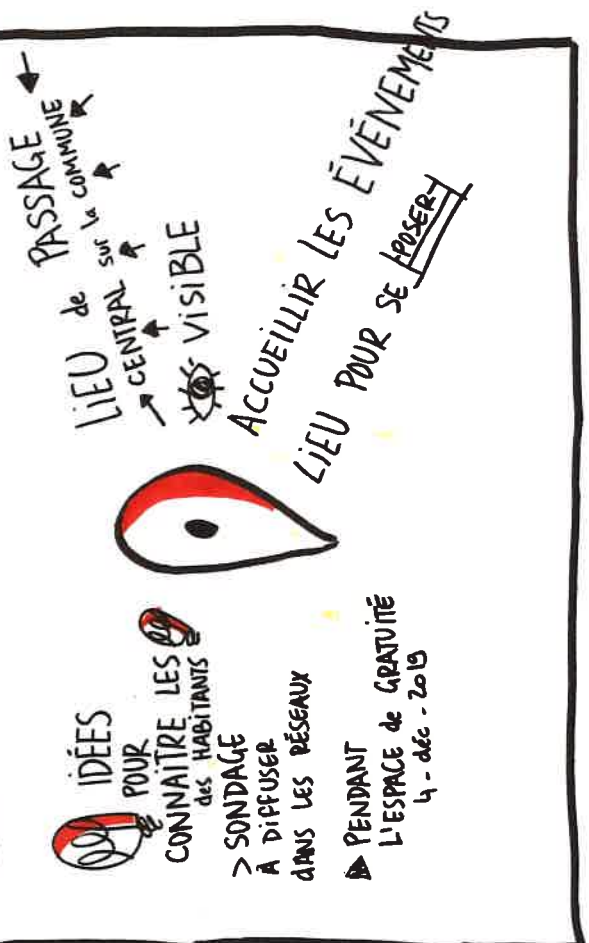 LIEU de PASSAGE
CENTRAL sur la COMMUNE
VISIBLE
ACCUEILLIR LES ÉVÉNEMENTS
LIEU POUR SE POSER
IDÉES
POUR
CONNAÎTRE LES
des HABITANTS
> SONDAGE
À DIFFUSER
dANS LES RÉSEAUX
PENDANT
L'ESPACE de GRATUITÉ
4 - déc - 2019